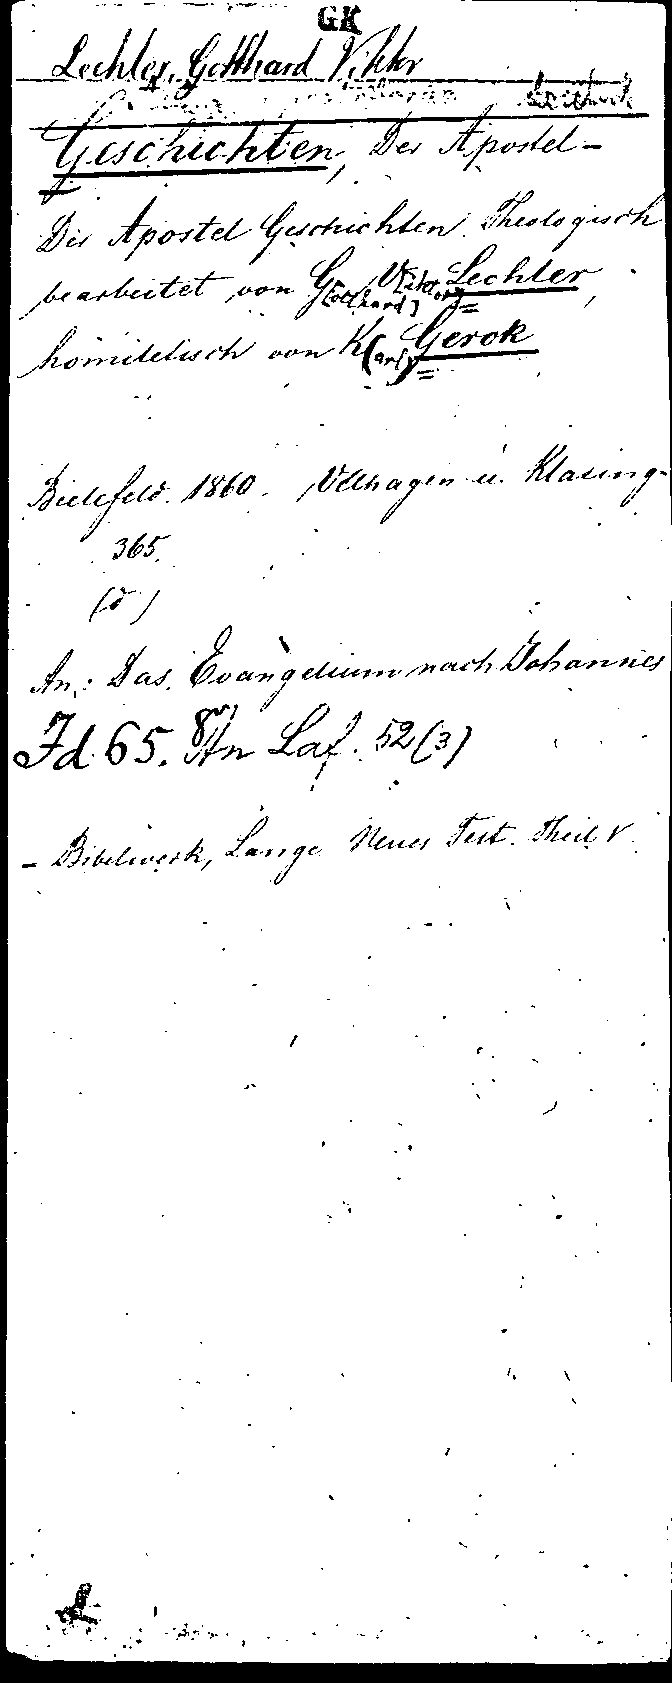 GK
Lechler, Gotthard Viktor
Geschichten, Der Apostel-
Der Apostel Geschichten. Theologisch
bearbeitet von G[otthard] V[iktor] Lechler,
homiletisch von K(arl) Gerok
Bielefeld. 1860. Velhagen u. Klasing.
365.
(8)
An: Das Evangelium nach Johannes
Jd. 65. 8vo An Laf. 52 (3)
- Bibelwerk, Lange Neues Test. Theil V.